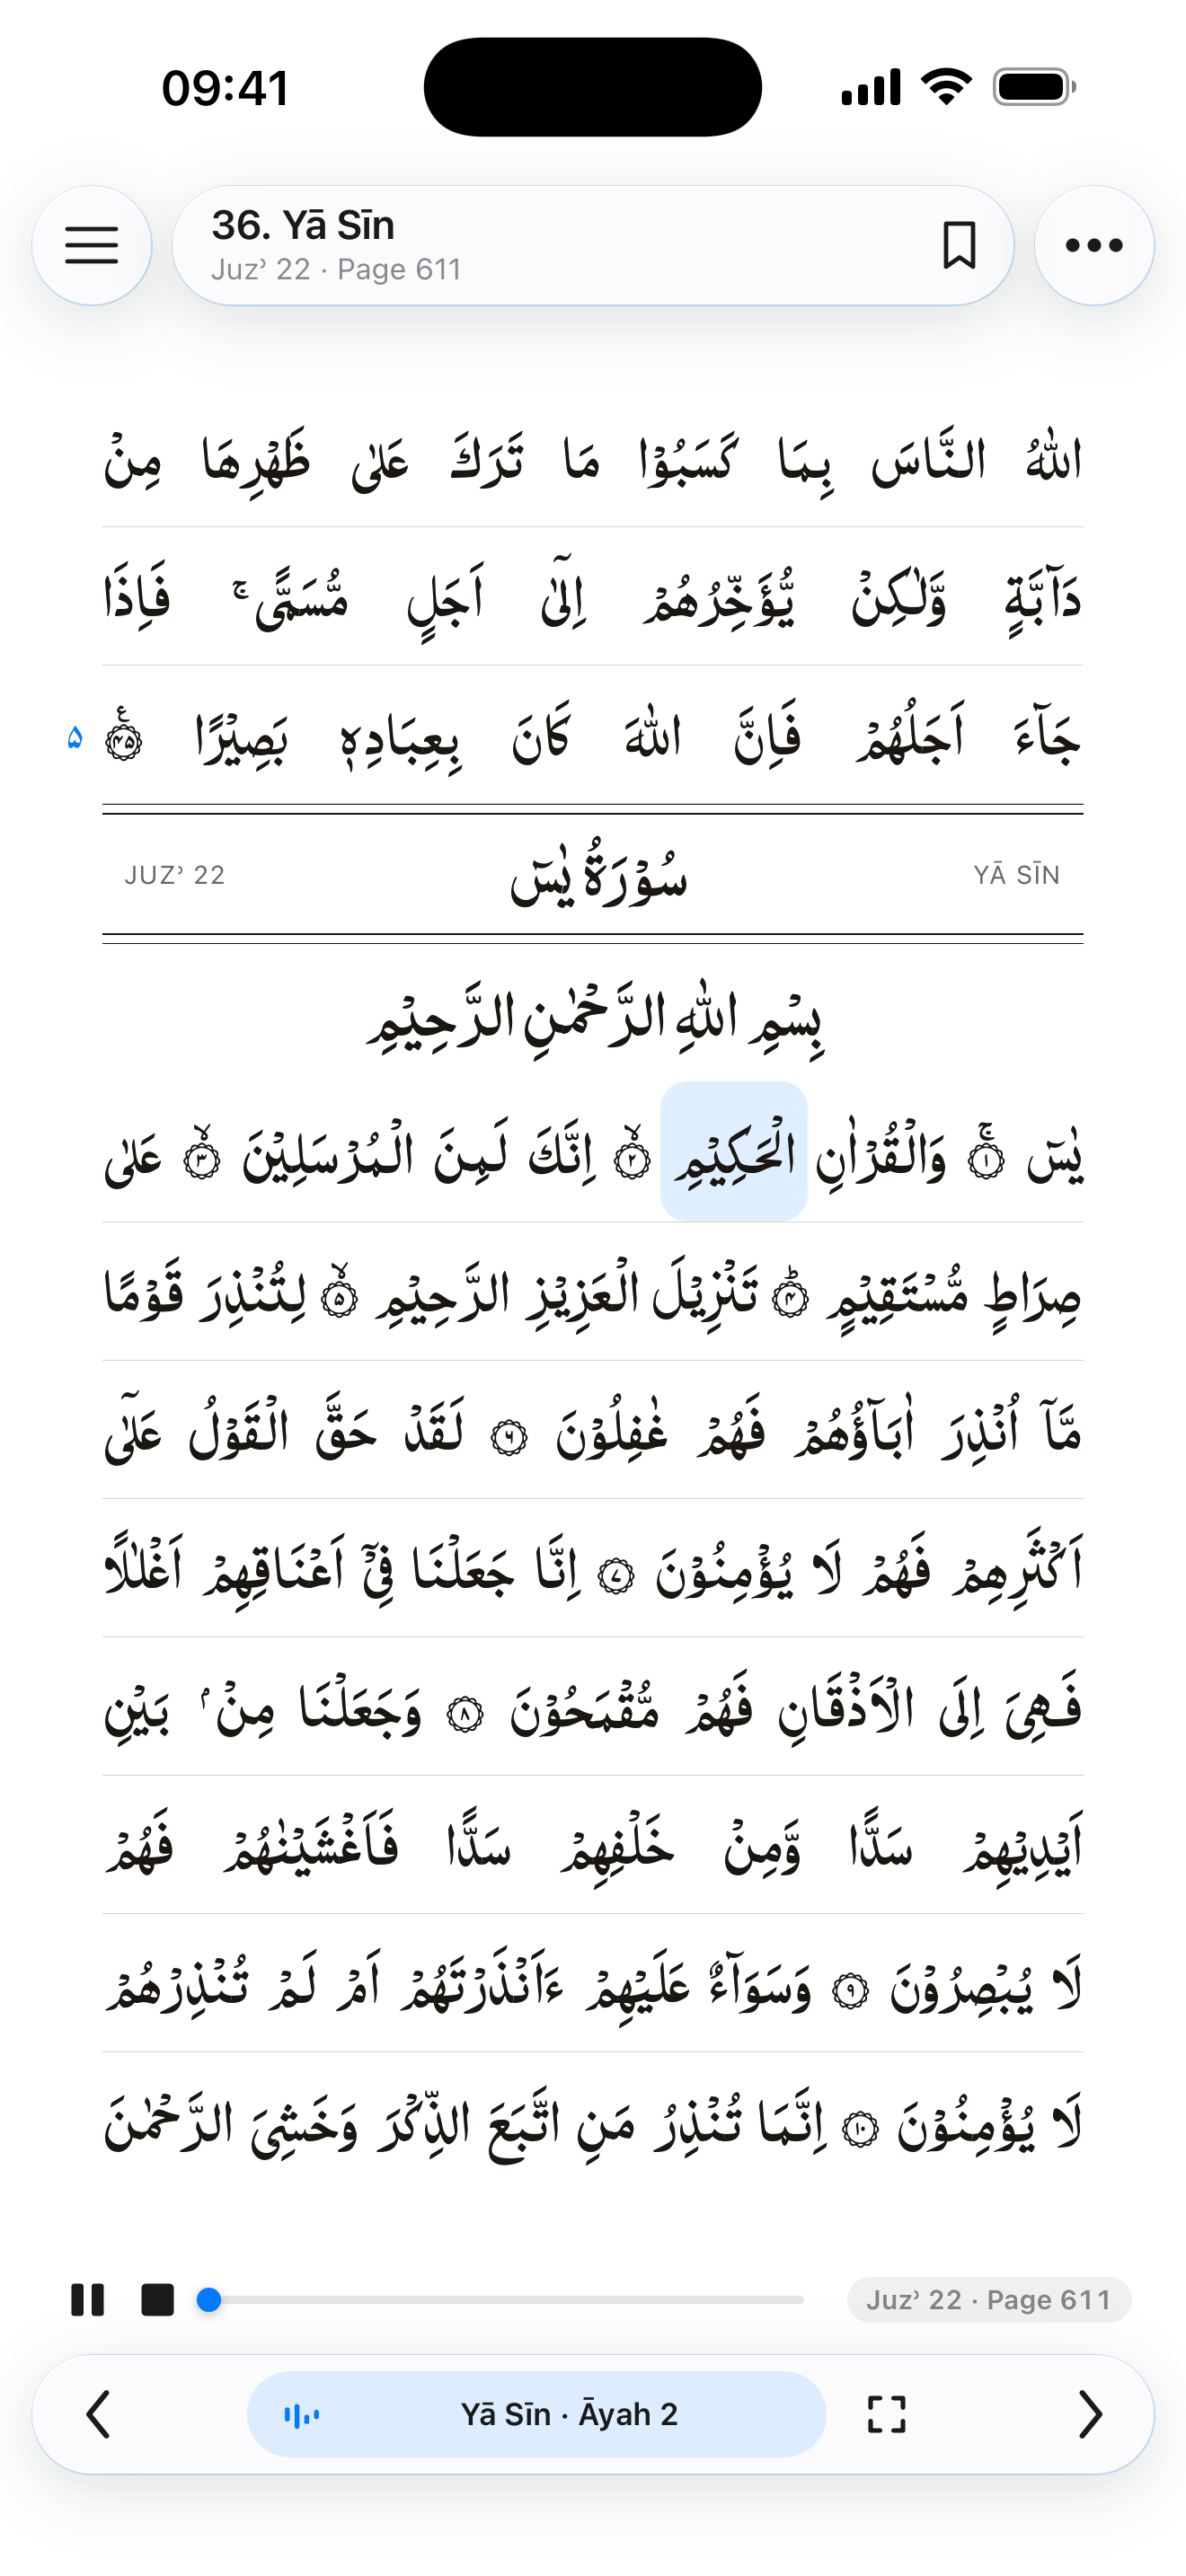 09:41
36. Yā Sīn
Juzʾ 22 · Page 611
اللّٰهُ النَّاسَ بِمَا كَسَبُوْا مَا تَرَكَ عَلٰى ظَهْرِهَا مِنْ
دَآبَّةٍ وَّلٰكِنْ يُّؤَخِّرُهُمْ اِلٰٓى اَجَلٍ مُّسَمًّى ۚ فَاِذَا
جَآءَ اَجَلُهُمْ فَاِنَّ اللّٰهَ كَانَ بِعِبَادِهٖ بَصِيْرًا ۧ ۴۵
۵
JUZʾ 22 سُوْرَةُ يٰسٓ YĀ SĪN
بِسْمِ اللّٰهِ الرَّحْمٰنِ الرَّحِيْمِ
يٰسٓ ۚ ۱ وَالْقُرْاٰنِ الْحَكِيْمِ ۙ ۲ اِنَّكَ لَمِنَ الْمُرْسَلِيْنَ ۙ ۳ عَلٰى
صِرَاطٍ مُّسْتَقِيْمٍ ؕ ۴ تَنْزِيْلَ الْعَزِيْزِ الرَّحِيْمِ ۙ ۵ لِتُنْذِرَ قَوْمًا
مَّآ اُنْذِرَ اٰبَآؤُهُمْ فَهُمْ غٰفِلُوْنَ ۶ لَقَدْ حَقَّ الْقَوْلُ عَلٰٓى
اَكْثَرِهِمْ فَهُمْ لَا يُؤْمِنُوْنَ ۷ اِنَّا جَعَلْنَا فِيْٓ اَعْنَاقِهِمْ اَغْلٰلًا
فَهِىَ اِلَى الْاَذْقَانِ فَهُمْ مُّقْمَحُوْنَ ۸ وَجَعَلْنَا مِنْۢ بَيْنِ
اَيْدِيْهِمْ سَدًّا وَّمِنْ خَلْفِهِمْ سَدًّا فَاَغْشَيْنٰهُمْ فَهُمْ
لَا يُبْصِرُوْنَ ۹ وَسَوَآءٌ عَلَيْهِمْ ءَاَنْذَرْتَهُمْ اَمْ لَمْ تُنْذِرْهُمْ
لَا يُؤْمِنُوْنَ ۱۰ اِنَّمَا تُنْذِرُ مَنِ اتَّبَعَ الذِّكْرَ وَخَشِىَ الرَّحْمٰنَ
Juzʾ 22 · Page 611
Yā Sīn · Āyah 2